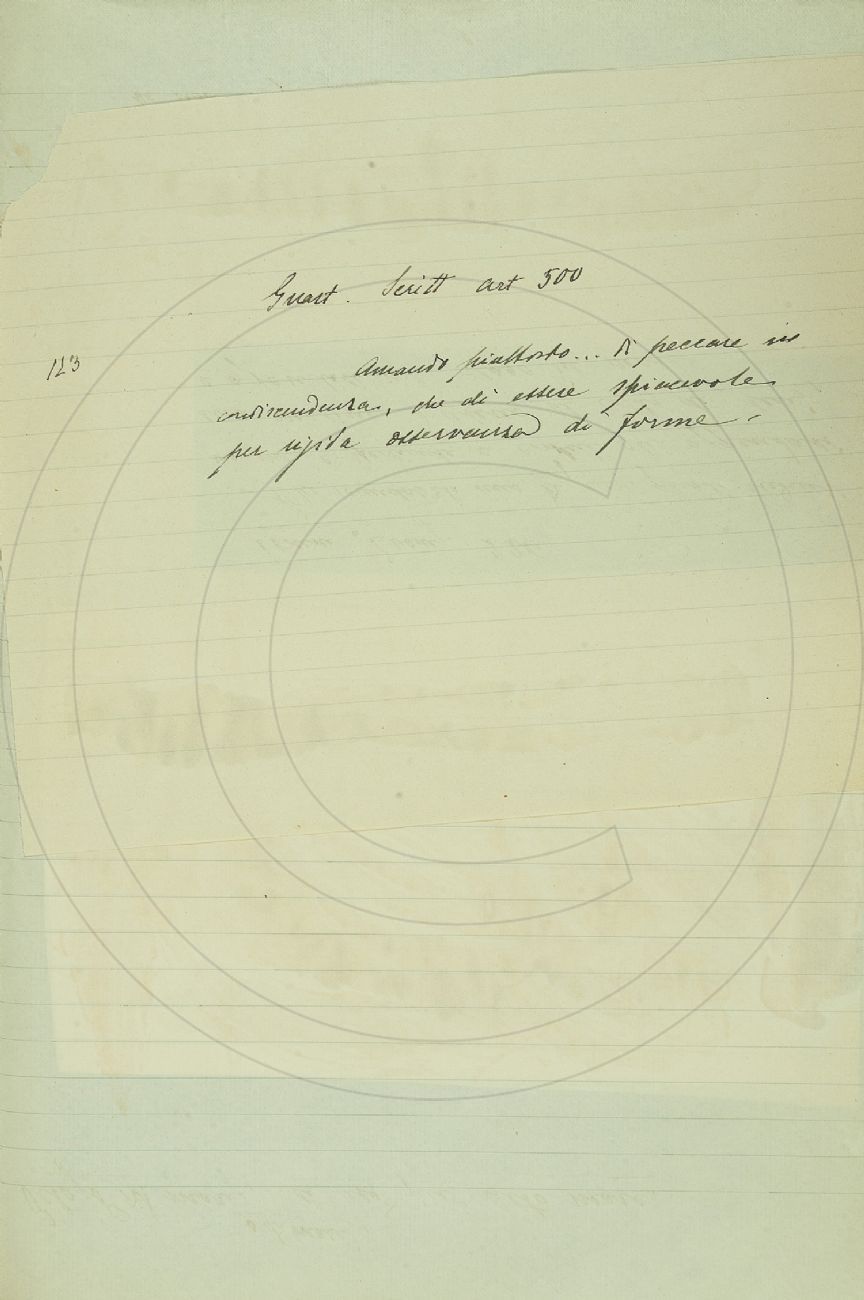 Guast. Scritt art 500
123
Amando piuttosto... di peccare in
condiscendenza, che di essere spiacevole
per rigida osservanza di forme -